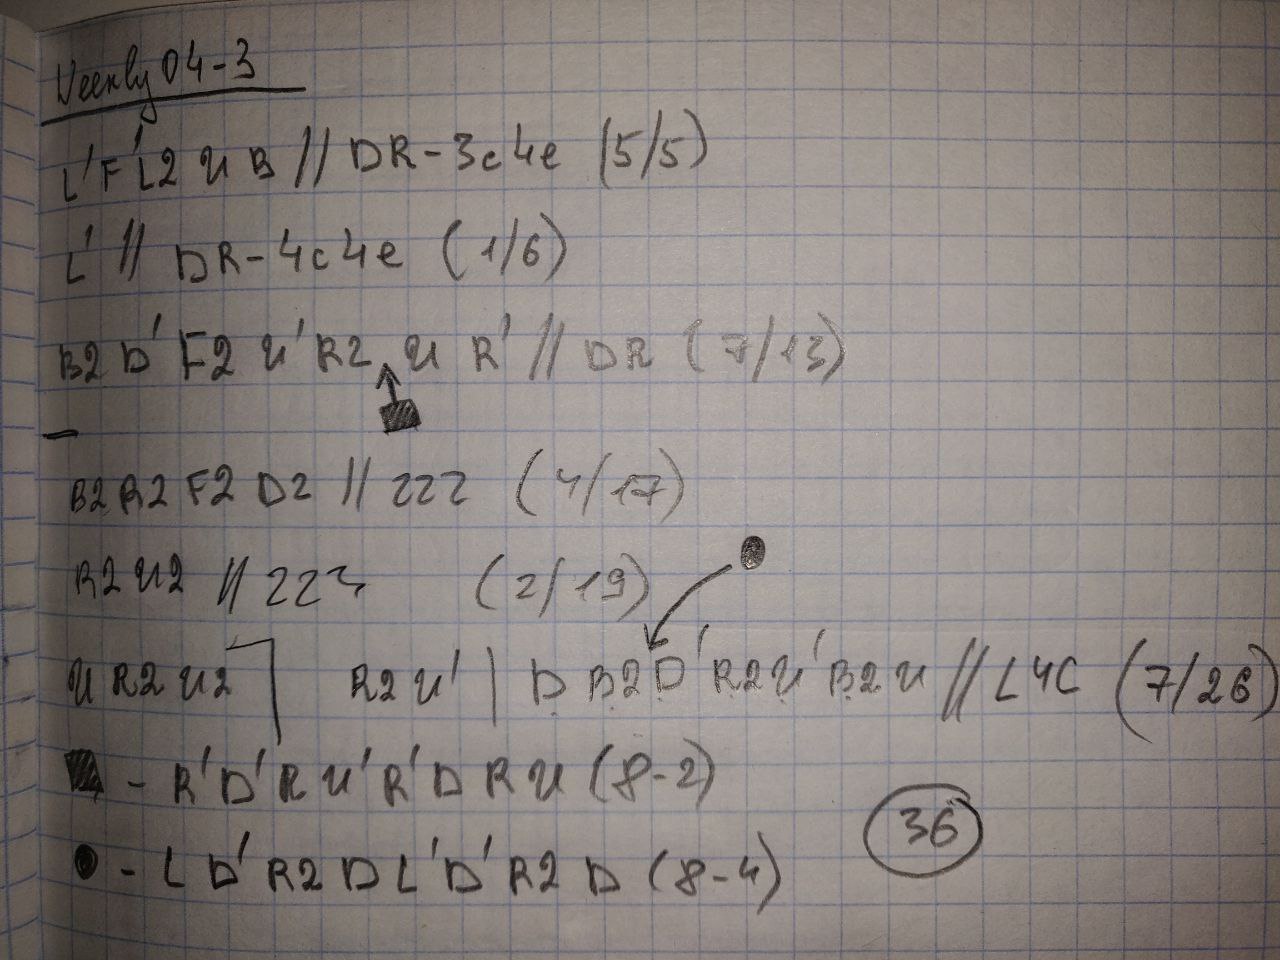 Weekly 04-3
L' F' L2 U B // DR-3c4e (5/5)
L' // DR-4c4e (1/6)
B2 D' F2 U' R2 U R' // DR (7/13)
B2 R2 F2 D2 // 222 (4/17)
R2 U2 // 223 (2/19)
U R2 U2 R2 U' | D B2 D' R2 U' B2 U // L4C (7/26)
- R' D' R U' R' D R U (8-2)
36
- L D' R2 D L' D' R2 D (8-4)